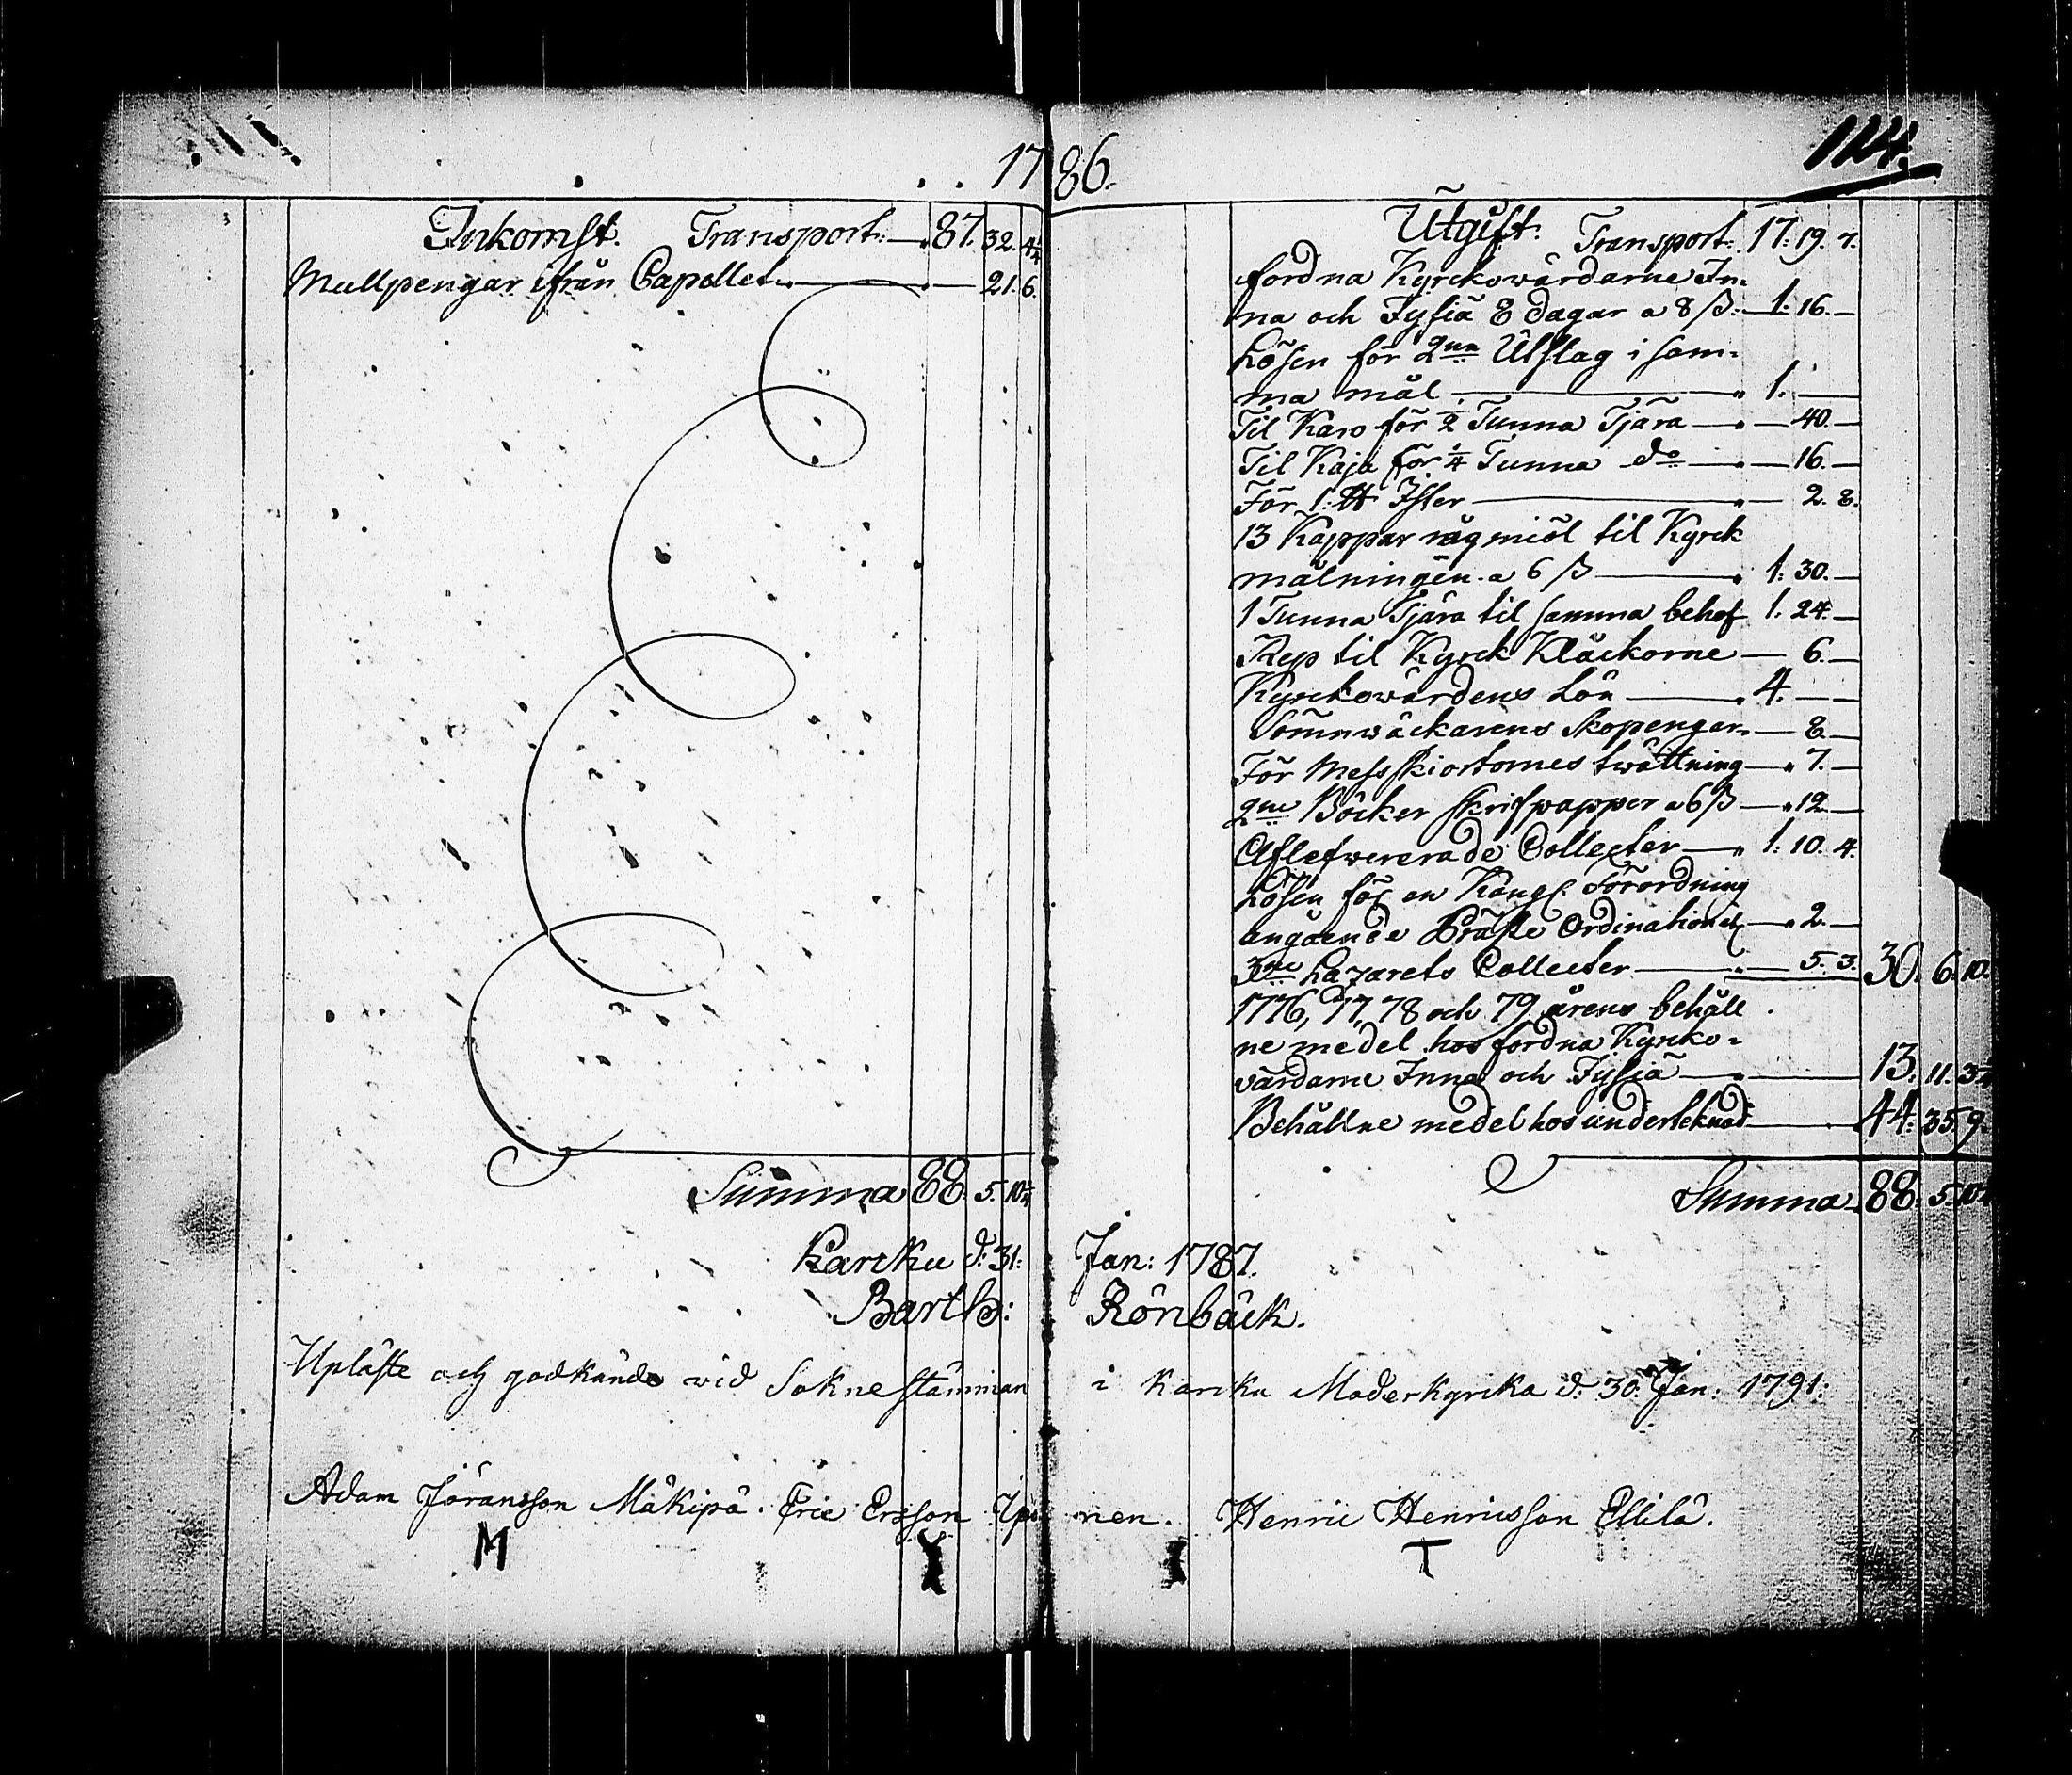 1786.
114.
Inkomst. Transport: 87. 32. 4¼
Mullpengar ifrån Capellet 21. 6.
Summa 88. 5. 10¼
Utgift. Transport. 17. 19. 7.
fordna Kyrckowärdarne In-
na och Tysiä 8 dagar a 8 ß. 1. 16.
Lösen för 2ne Utslag i sam-
ma mål 1.
Til Karo för ½ Tunna Tjära 40.
Til Kaja för ¼ Tunna do 16.
För 1. ℔ Ister 2. 8.
13 Kappar rågmiöl til Kyrck
målningen a 6 ß 1. 30.
1 Tunna Tjära til samma behof 1. 24.
Rep til Kyrck Kläckorne 6.
Kyrckowärdens Lön 4.
Sömnwäckarens Skopengar 8
För Messkiortornes twättning 7.
2ne Böcker skrifpapper a 6 ß 12
Aflefwererade Collecter 1. 10. 4.
Lösen för en Kongl. Förordning
angående Präste Ordinationer 2.
3ne Lazarets Collecter 5. 3. 30. 6. 10.
1776, 77, 78 och 79 årens behåll
ne medel hos fordna Kyrcko-
värdarne Inna och Tysiä 13. 11. 3¼
Behållne medel hos undertecknad 44. 35. 9.
Summa 88. 5. 10¼
Karcku d: 31: Jan: 1787.
Barth: Rönbäck.
Upläste och godkände wid Sokne stämman i Karcku Moderkyrcka d: 30. Jan: 1791:
Adam Jöransson Mäkipä. Eric Ersson Ypönen. Henric Henricsson Ellilä.
M T